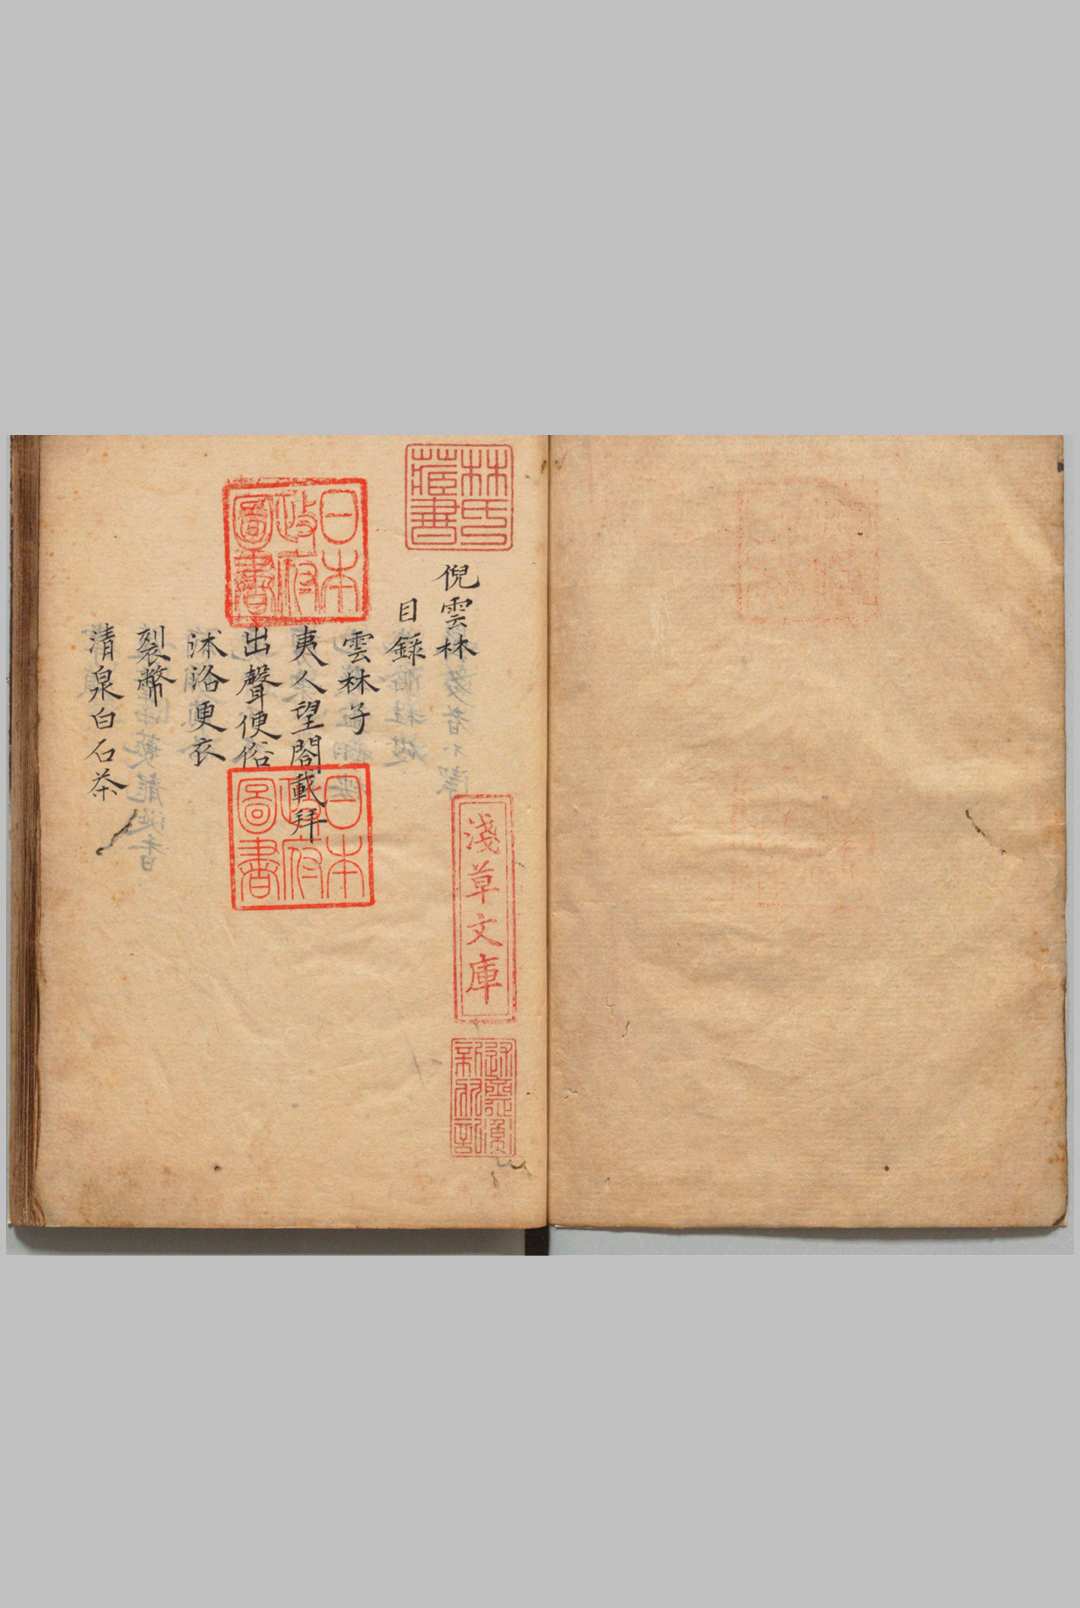 倪雲林
目錄
雲林子
夷人望閣載拜
出聲便俗
沐浴更衣
裂幣
清泉白石茶
林氏藏書
日本政府圖書
日本政府圖書
淺草文庫